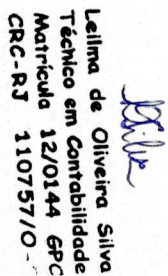 Leilma de Oliveira Silva
Técnico em Contabilidade
Matrícula 12/0144 GPC
CRC-RJ 110757/O-